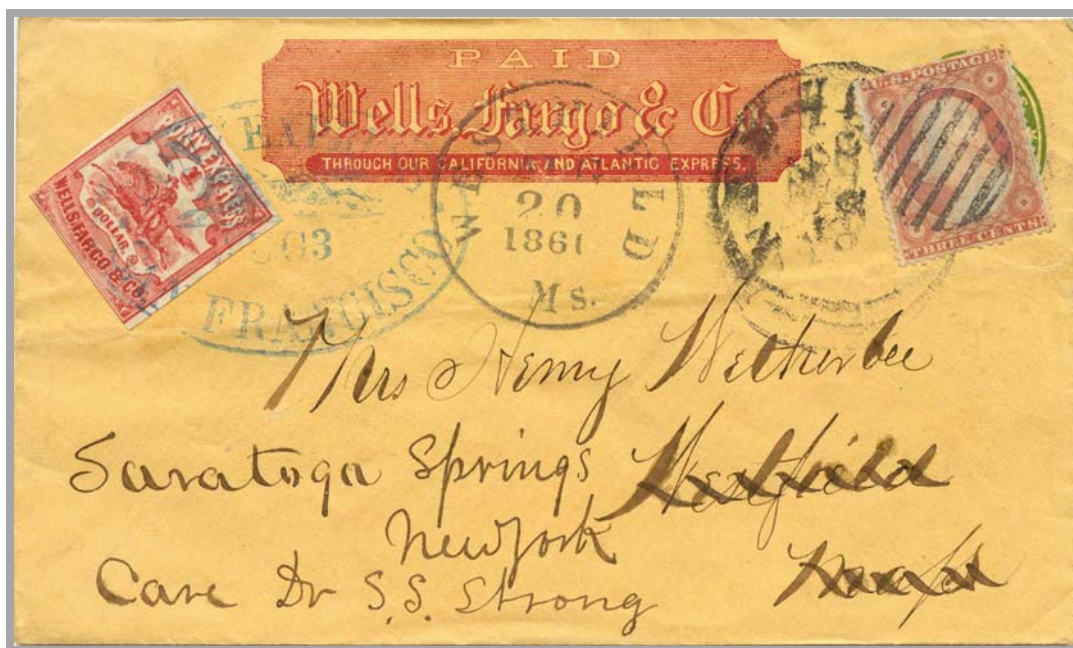 PAID
Wells Fargo & Co.
THROUGH OUR CALIFORNIA AND ATLANTIC EXPRESS.
PONY EXPRESS
1
DOLLAR
WELLS, FARGO & CO.
FRANCISCO
WESTFIELD
20
1861
Ms.
U.S. POSTAGE
THREE CENTS
Mrs Henry Wetherbee
Saratoga Springs Westfield
New York
Mass
Care Dr S.S. Strong